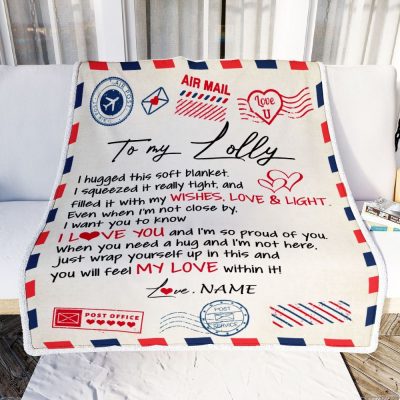 AIR MAIL
AIR POST
Love
U
To my Lolly
I hugged this soft blanket.
I squeezed it really tight, and
filled it with my WISHES, LOVE & LIGHT.
Even when I'm not close by,
I want you to know
I L♥VE YOU and I'm so proud of you.
When you need a hug and I'm not here,
just wrap yourself up in this and
you will feel MY LOVE within it!
Love, NAME
POST OFFICE
POST
SERVICE